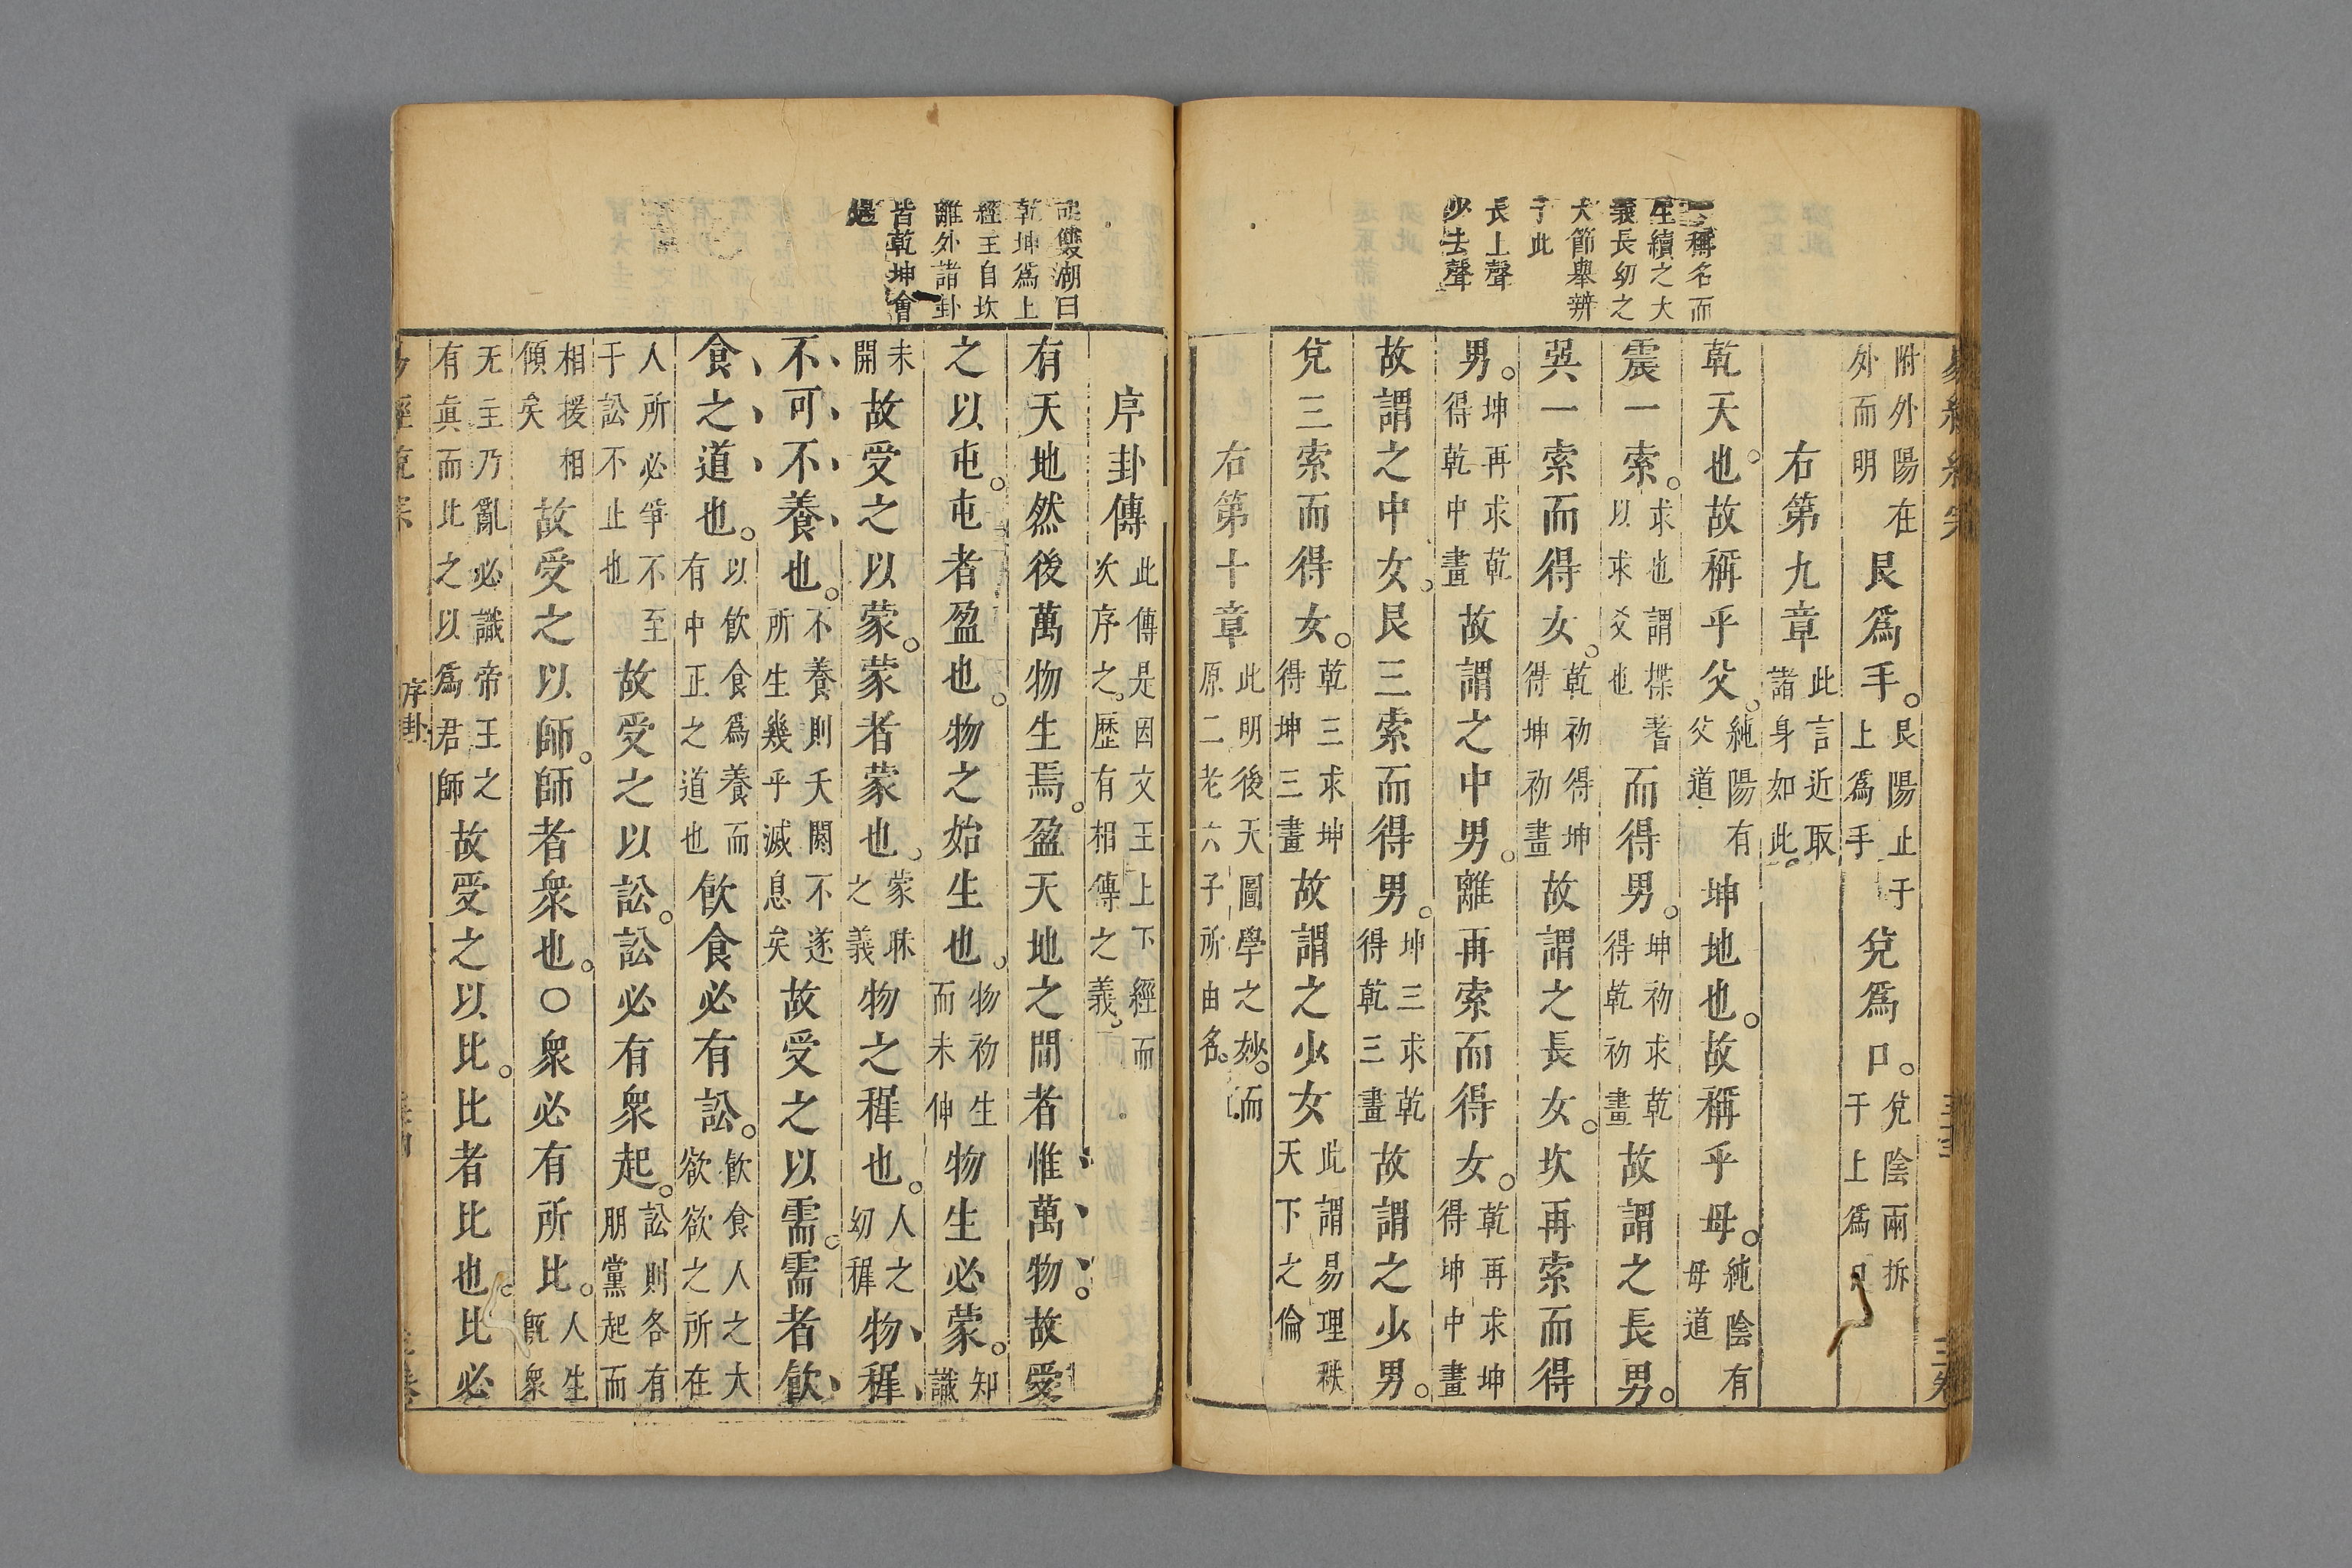 稱名而
生續之大
義長幼之
大節舉辨
于此
長上聲
少去聲
附外陽在外而明艮爲手。艮陽止于上爲手兌爲口。兌陰兩拆于上爲口
右第九章此言近取諸身如此
乾天也故稱乎父。純陽有父道坤地也。故稱乎母。純陰有母道
震一索。求也謂揲蓍以求爻也而得男。坤初求乾得乾初畫故謂之長男。
巽一索而得女。乾初得坤得坤初畫故謂之長女。坎再索而得
男。坤再求乾得乾中畫故謂之中男。離再索而得女。乾再求坤得坤中畫
故謂之中女。艮三索而得男。坤三求乾得乾三畫故謂之少男。
兌三索而得女。乾三求坤得坤三畫故謂之少女此謂易理秩天下之倫
右第十章此明後天圖學之妙。而原二老六子所由名。
雙湖曰
乾坤爲上
經主自坎
離外諸卦
皆乾坤會
遇
序卦傳此傳是因文王上下經而次序之。歷有相傳之義。
有天地然後萬物生焉。盈天地之間者惟萬物。故受
之以屯。屯者盈也。物之始生也。物初生而未伸物生必蒙。知識
未開故受之以蒙。蒙者蒙也。蒙昧之義物之稺也。人之幼稺物稺
不可不養也。不養則夭閼不遂所生幾乎滅息矣故受之以需。需者飲
食之道也。以飲食爲養而有中正之道也飲食必有訟。飲食人之大欲欲之所在
人所必爭不至于訟不止也故受之以訟。訟必有衆起。訟則各有朋黨起而
相援相傾矣故受之以師。師者衆也。○衆必有所比。人生旣衆
无主乃亂必識帝王之有眞而此之以爲君師故受之以比。比者比也比必
序卦